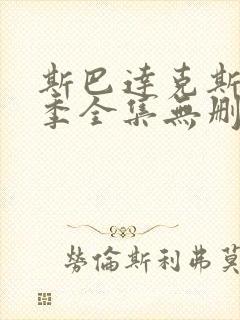 斯巴達克斯
季全集無刪
勞倫斯利弗莫